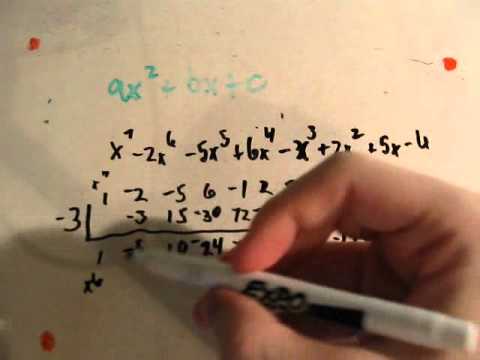 ax² + bx + c
x⁷ -2x⁶ -5x⁵ +6x⁴ -x³ +2x² +5x -4
x⁷
1 -2 -5 6 -1 2
-3
-3 15 -30 72
1 10 -24
x⁶
EXPO